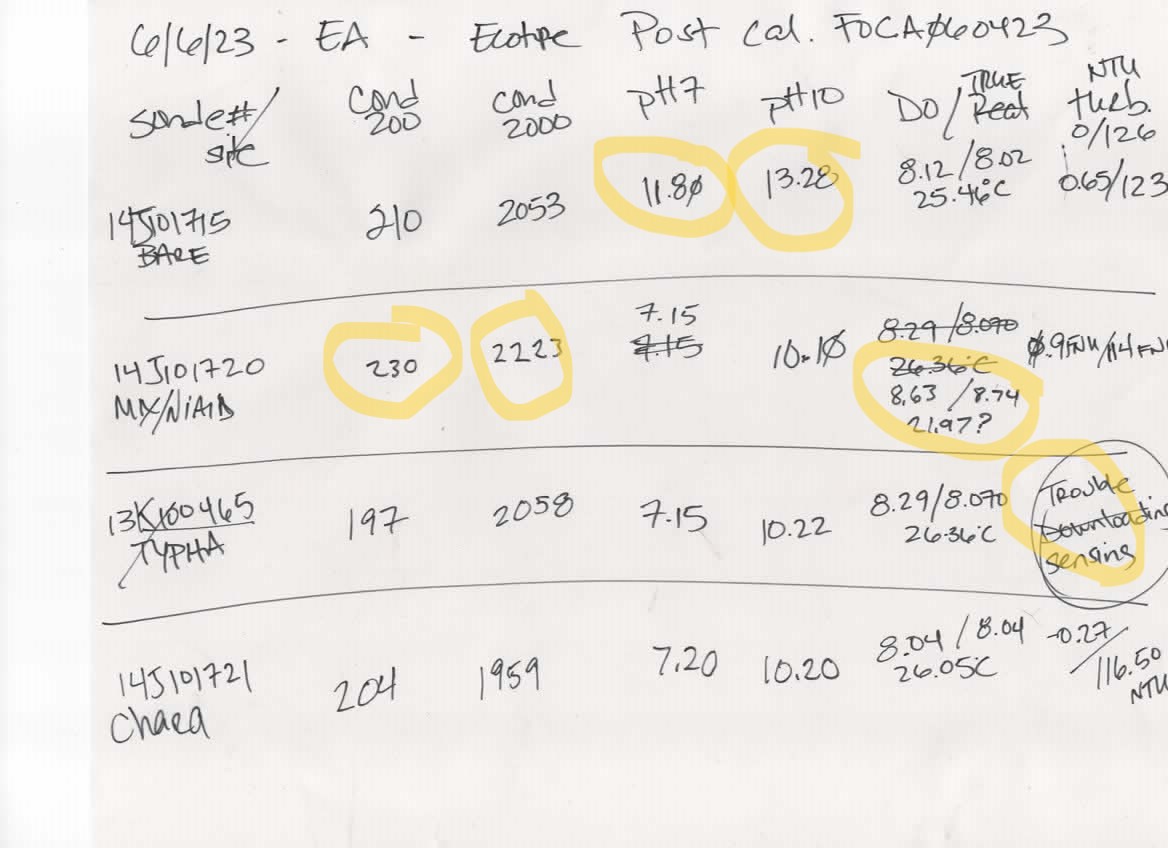 6/6/23 - EA - Ecotype Post Cal. FOCAØ60423
sonde#/ site Cond 200 Cond 2000 pH7 pH10 DO / TRUE Real NTU turb. 0/126
14J101715 BARE 210 2053 11.8Ø 13.28 8.12 / 8.02 25.46°C 0.65/123
14J101720 230 2223 7.15 7.15 10.1Ø 8.29 / 8.070 26.36°C 8.63 / 8.74 21.97? Ø.9 FNU/114
13K100465 TYPHA 197 2058 7.15 10.22 8.29/8.070 26.36°C Trouble Downloading sensing
14J101721 Chara 204 1959 7.20 10.20 8.04 / 8.04 26.05°C -0.27/ 116.50 NTU